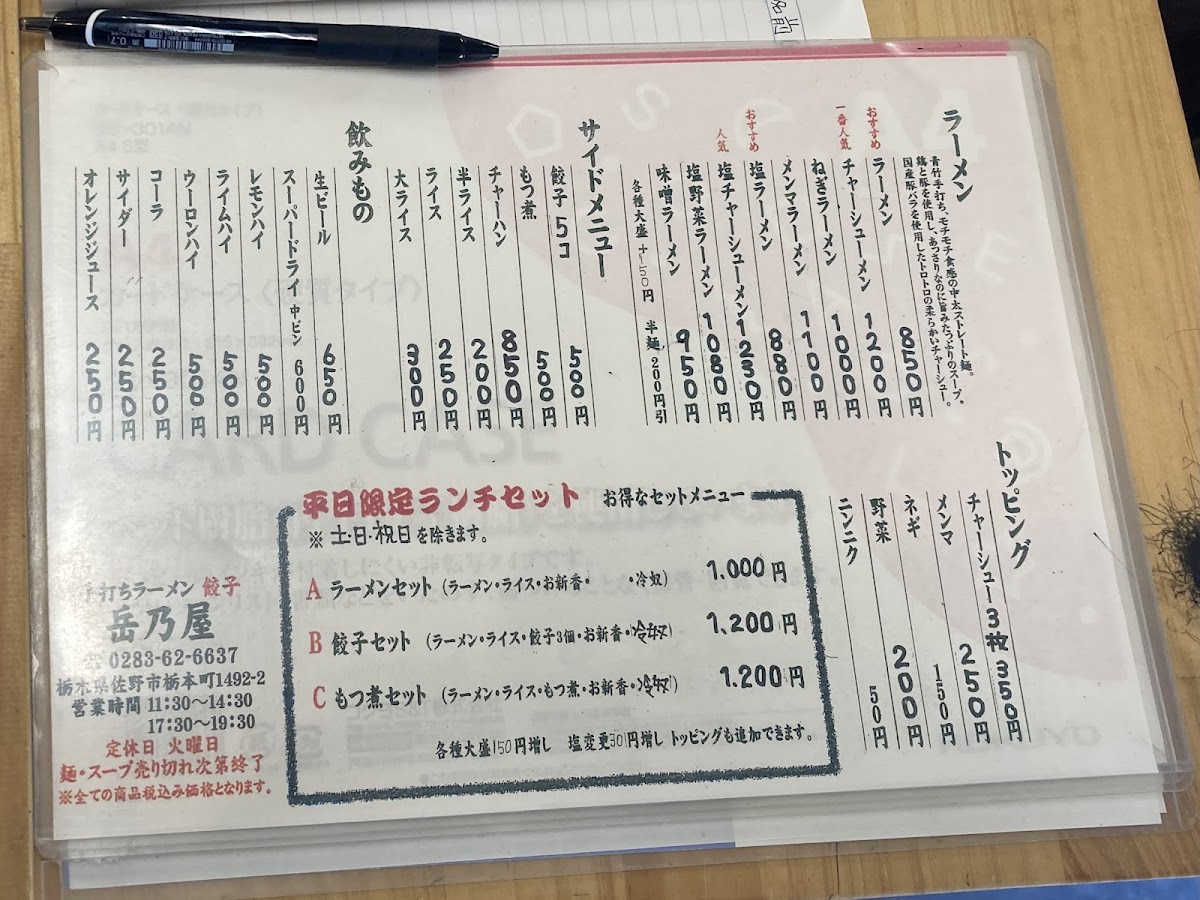 ラーメン
青竹手打ち、モチモチ食感の中太ストレート麺。
鶏と豚を使用し、あっさりなのに旨みたっぷりのスープ。
国産豚バラを使用したトロトロの柔らかいチャーシュー。
おすすめ
ラーメン 850円
一番人気
チャーシューメン 1200円
ねぎラーメン 1000円
メンマラーメン 1100円
おすすめ
塩ラーメン 880円
人気
塩チャーシューメン 1230円
塩野菜ラーメン 1080円
味噌ラーメン 950円
各種大盛+150円 半麺200円引
サイドメニュー
餃子5コ 500円
もつ煮 500円
チャーハン 850円
半ライス 200円
ライス 250円
大ライス 300円
飲みもの
生ビール 650円
スーパードライ 中ビン 600円
レモンハイ 500円
ライムハイ 500円
ウーロンハイ 500円
コーラ 250円
サイダー 250円
オレンジジュース 250円
トッピング
チャーシュー3枚 350円
メンマ 250円
ネギ 150円
野菜 200円
ニンニク 50円
平日限定ランチセット お得なセットメニュー
※ 土・日・祝日を除きます。
A ラーメンセット (ラーメン・ライス・お新香・ ・冷奴) 1.000円
B 餃子セット (ラーメン・ライス・餃子3個・お新香・冷奴) 1,200円
C もつ煮セット (ラーメン・ライス・もつ煮・お新香・冷奴) 1.200円
各種大盛150円増し 塩変更30円増し トッピングも追加できます。
手打ちラーメン 餃子
岳乃屋
☎ 0283-62-6637
栃木県佐野市栃本町1492-2
営業時間 11:30～14:30
17:30～19:30
定休日 火曜日
麺・スープ売り切れ次第終了
※全ての商品税込み価格となります。
CARD CASE
名前
0.7